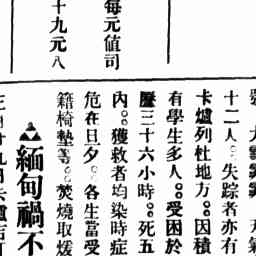 每元值司
十九元八
十二人。失踪者亦有
卡爐列杜地方。因積
有學生多人。受困於
歷三十六小時。死五
內。獲救者均染時症
危在旦夕。各生當受
籍椅墊等。焚燒取煖
緬甸禍不